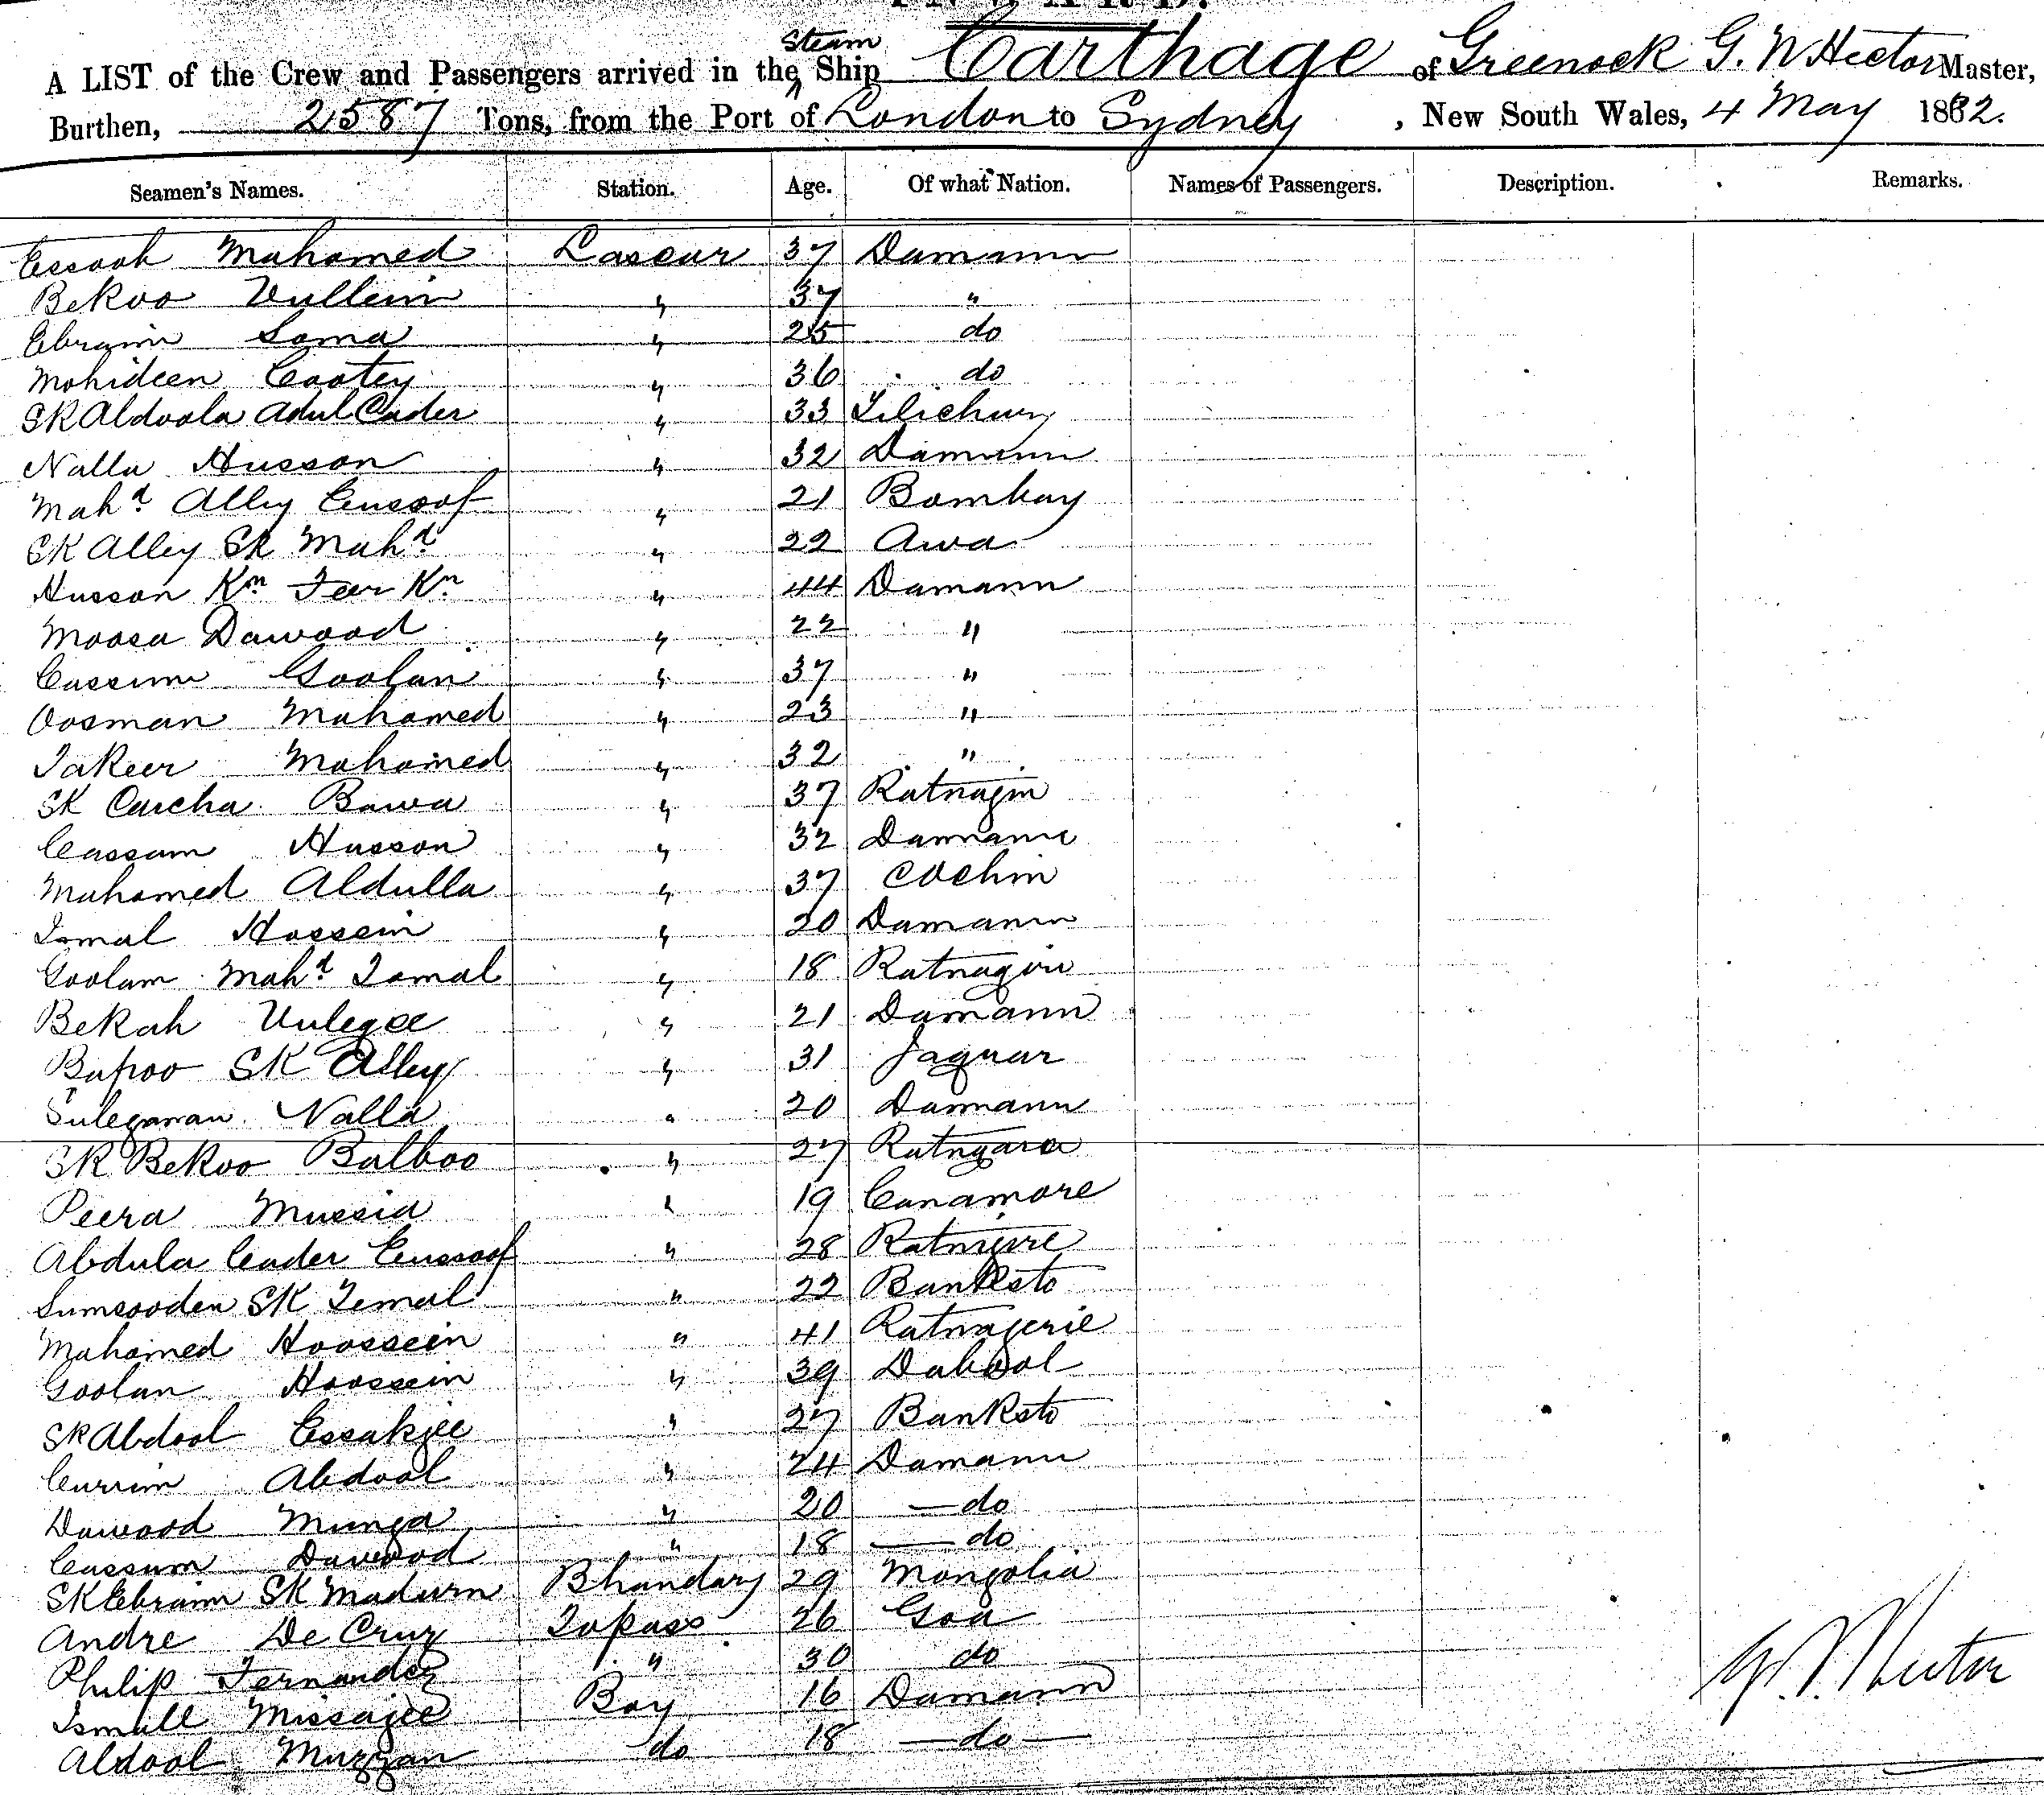 A LIST of the Crew and Passengers arrived in the Steam Ship Carthage of Greenock G. W Hector Master,
Burthen, 2587 Tons, from the Port of London to Sydney, New South Wales, 4 May 1882.
Seamen's Names. Station. Age. Of what Nation. Names of Passengers. Description. Remarks.
Essook Mahomed Lascar 37 Damann
Bekoo Vullem " 37 "
Ebraim Soma " 25 do
Mohideen Cootey " 36 do
SK Aldoola Adul Cader " 33
Nalla Husson " 32 Damann
Mahd Alley Eussoof " 21 Bombay
SK Alley SK Mahd " 22 Awa
Husson Kn Feer Kn " 44 Damann
Moosa Dawood " 22 "
Cassim Goolan " 37 "
Oosman Mahomed " 23 "
Takeer Mahomed " 32 "
SK Carcha Bawa " 37 Ratnagin
Cassam Husson " 32 Damann
Mahomed Aldulla " 37 Cochin
Ismal Hossein " 20 Damann
Goolam Mahd Ismal " 18 Ratnagiri
Bekah Vulegee " 21 Damann
Bapoo SK Alley " 31 Jaguar
Sulegaman Nalla " 20 Damann
SK Bekoo Balboo " 27 Ratnagara
Peera Mussia " 19 Canamore
Abdula Cader Eussoof " 28 Ratnigire
Sumsooden SK Ismal " 22 Banksto
Mahomed Hoossein " 41 Ratnagerie
Goolan Hoossein " 39 Dabool
SK Abdool Essakjee " 27 Banksto
Currim Abdool " 24 Damann
Dawood Munga " 20 — do
Cassum Dawood " 18 — do
SK Ebraim SK Madurn Bhandary 29 Mongolia
Andre De Cruz Topass 26 Goa
Philip Fernandez " 30 do
Ismall Missajee Boy 16 Damann
Aldool Muzzan do 18 — do —
G. W. Hector